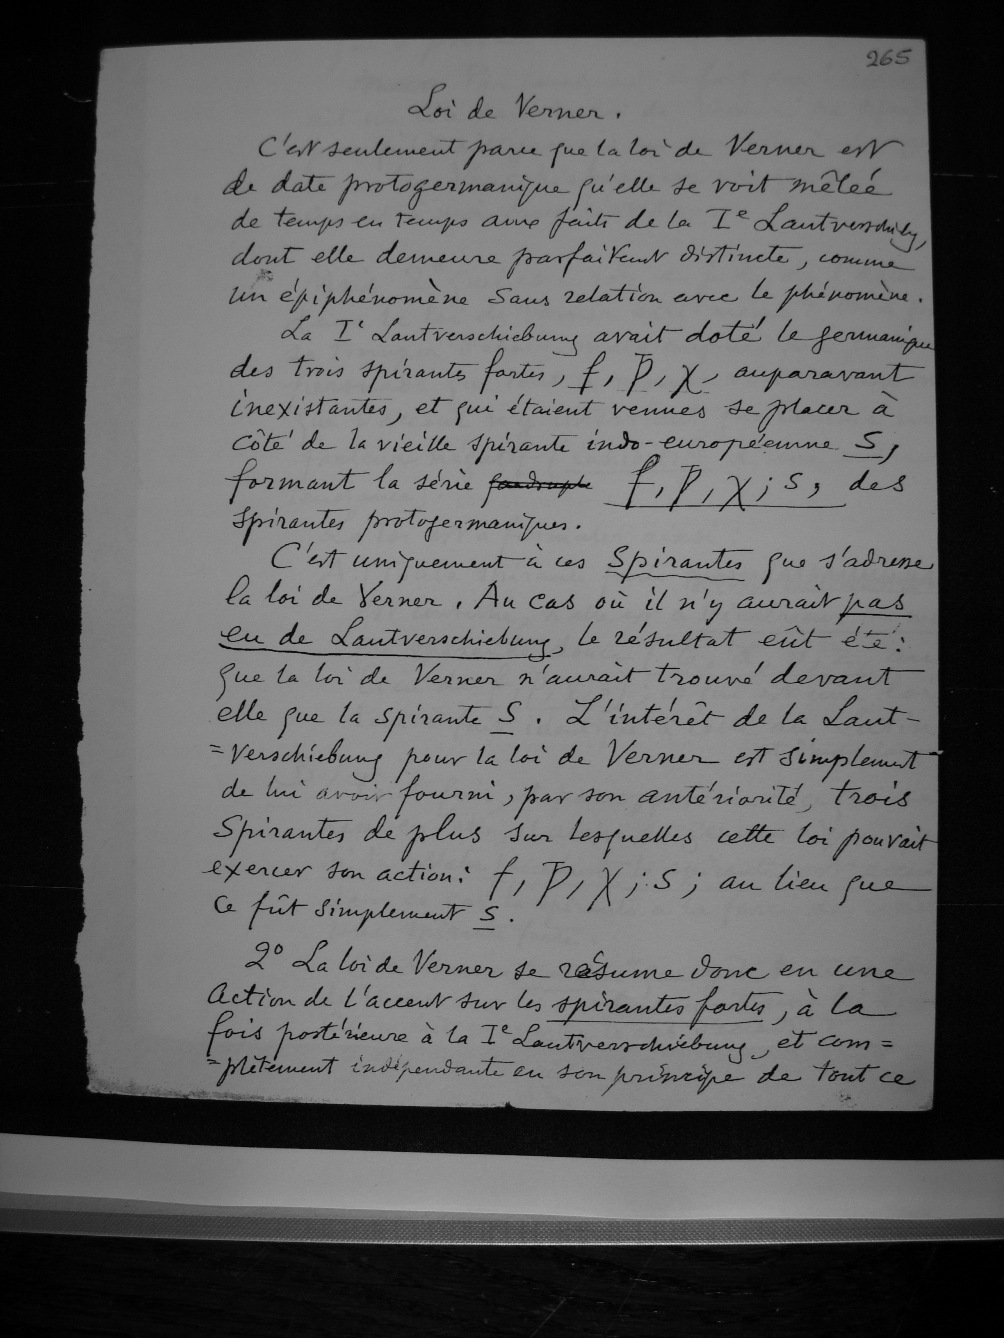 265
Loi de Verner.
C'est seulement parce que la loi de Verner est
de date protogermanique qu'elle se voit mêlée
de temps en temps aux faits de la Ie Lautverschiebg,
dont elle demeure parfaitement distincte, comme
un épiphénomène sans relation avec le phénomène.
La Ie Lautverschiebung avait doté le germanique
des trois spirantes fortes, f, þ, χ, auparavant
inexistantes, et qui étaient venues se placer à
côté de la vieille spirante indo-européenne s,
formant la série quadruple f, þ, χ; s, des
spirantes protogermaniques.
C'est uniquement à ces Spirantes que s'adresse
la loi de Verner. Au cas où il n'y aurait pas
eu de Lautverschiebung, le résultat eût été:
que la loi de Verner n'aurait trouvé devant
elle que la spirante s. L'intérêt de la Laut-
=verschiebung pour la loi de Verner est simplement
de lui avoir fourni, par son antériorité, trois
spirantes de plus sur lesquelles cette loi pouvait
exercer son action: f, þ, χ; s; au lieu que
ce fût simplement s.
2° La loi de Verner se résume donc en une
action de l'accent sur les spirantes fortes, à la
fois postérieure à la Ie Lautverschiebung, et com=
=plètement indépendante en son principe de tout ce